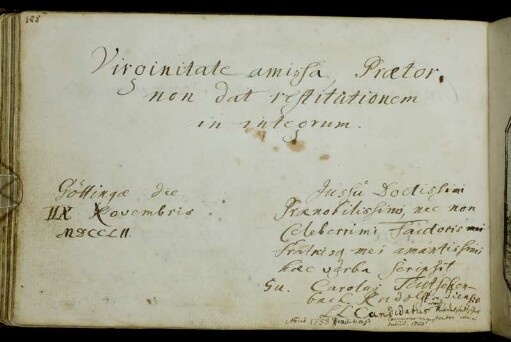 188
Virginitate amissa, Prætor
non dat restitutionem
in integrum.
Göttingæ die
IIX Novembris
MDCCLII
Jussu Doctissimi
Prænobilissimi, nec non
Celeberrimi Fautoris mei
fratrisq mei amantissimi
hæc verba scripsit
Gu. Carolus
bach, Rudolst
LL Candidatus
1753